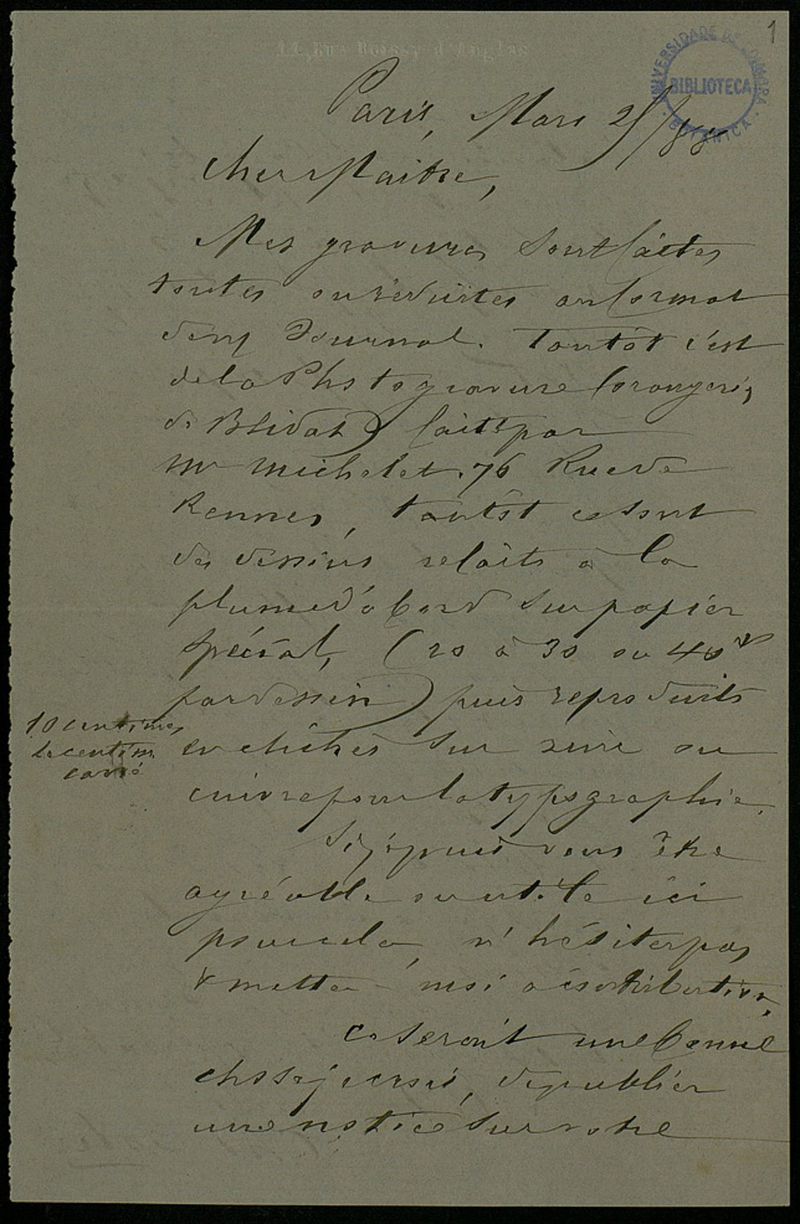 1
14, Rue Boissy d'Anglas
UNIVERSIDADE DE COIMBRA
BIBLIOTECA
BOTANICA
Paris, Mars 25/88
Cher Maitre,
Mes gravures sont faites
toutes ou réduites au format
du Journal. Tantôt c'est
de la Photogravure (orangerie,
de Blidah) faite par
Mr Michelet, 76 Rue de
Rennes, tantôt ce sont
des dessins refaits à la
plume d'abord sur papier
spécial, (20 à 30 ou 40 fr
par dessin) puis reproduits
10 centimes
le centim.
carré
en clichés sur zinc ou
cuivre pour la typographie.
Si je puis vous être
agréable ou utile ici
pour cela, n'hésitez pas
& mettez-moi à contribution.
Ce serait une bonne
chose je crois, de publier
une notice sur votre